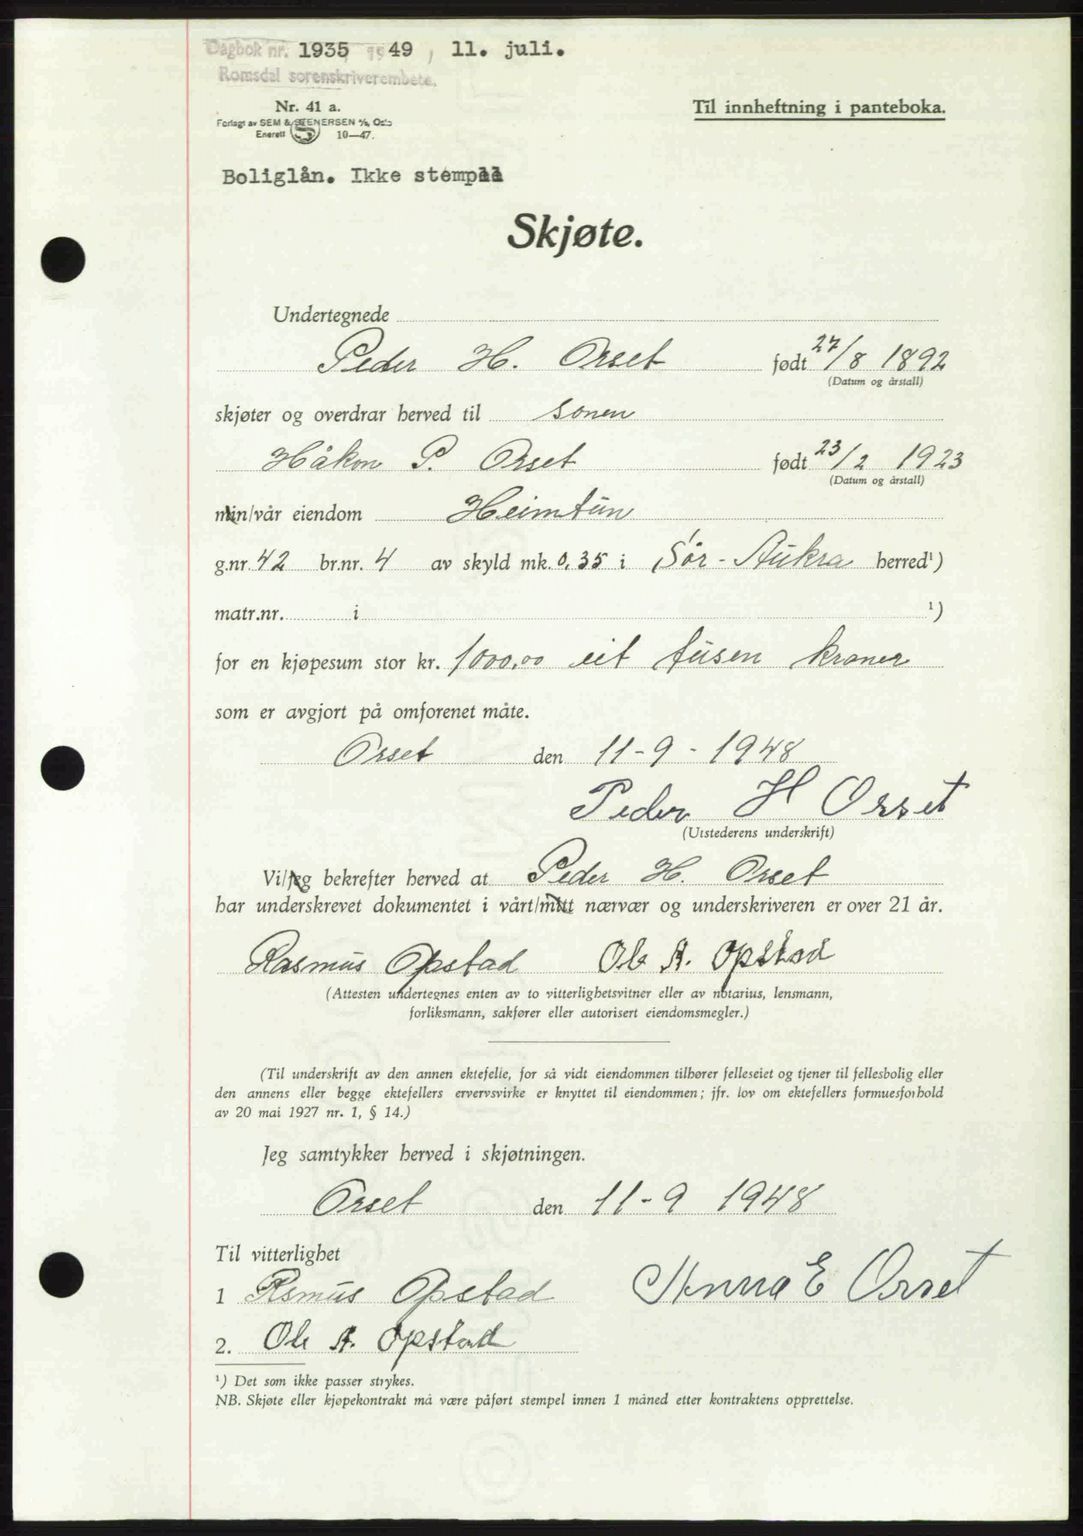 Dagbok nr. 1935 1949, 11. juli.
Romsdal sorenskriverembete.
Nr. 41 a.
Forlagt av SEM & STENERSEN A/S, Oslo
Enerett S 10—47.
Til innheftning i panteboka.
Boliglån. Ikke stempel
Skjøte.
Undertegnede
Peder H. Orset født 27/8 1892
(Datum og årstall)
skjøter og overdrar herved til sonen
Håkon P. Orset født 23/2 1923
(Datum og årstall)
min/vår eiendom Heimtun
g.nr. 42 br.nr. 4 av skyld mk. 0,35 i Sør-Aukra herred¹)
matr.nr. i ¹)
for en kjøpesum stor kr. 1000,00 eit tusen kroner
som er avgjort på omforenet måte.
Orset den 11-9-1948
Peder H Orset
(Utstederens underskrift)
Vi/jeg bekrefter herved at Peder H. Orset
har underskrevet dokumentet i vårt/mitt nærvær og underskriveren er over 21 år.
Rasmus Opstad Ole A. Opstad
(Attesten undertegnes enten av to vitterlighetsvitner eller av notarius, lensmann,
forliksmann, sakfører eller autorisert eiendomsmegler.)
(Til underskrift av den annen ektefelle, for så vidt eiendommen tilhører felleseiet og tjener til fellesbolig eller
den annens eller begge ektefellers ervervsvirke er knyttet til eiendommen; jfr. lov om ektefellers formuesforhold
av 20 mai 1927 nr. 1, § 14.)
Jeg samtykker herved i skjøtningen.
Orset den 11-9 1948
Til vitterlighet
1 Rasmus Opstad Anna E Orset
2. Ole A. Opstad
¹) Det som ikke passer strykes.
NB. Skjøte eller kjøpekontrakt må være påført stempel innen 1 måned etter kontraktens opprettelse.